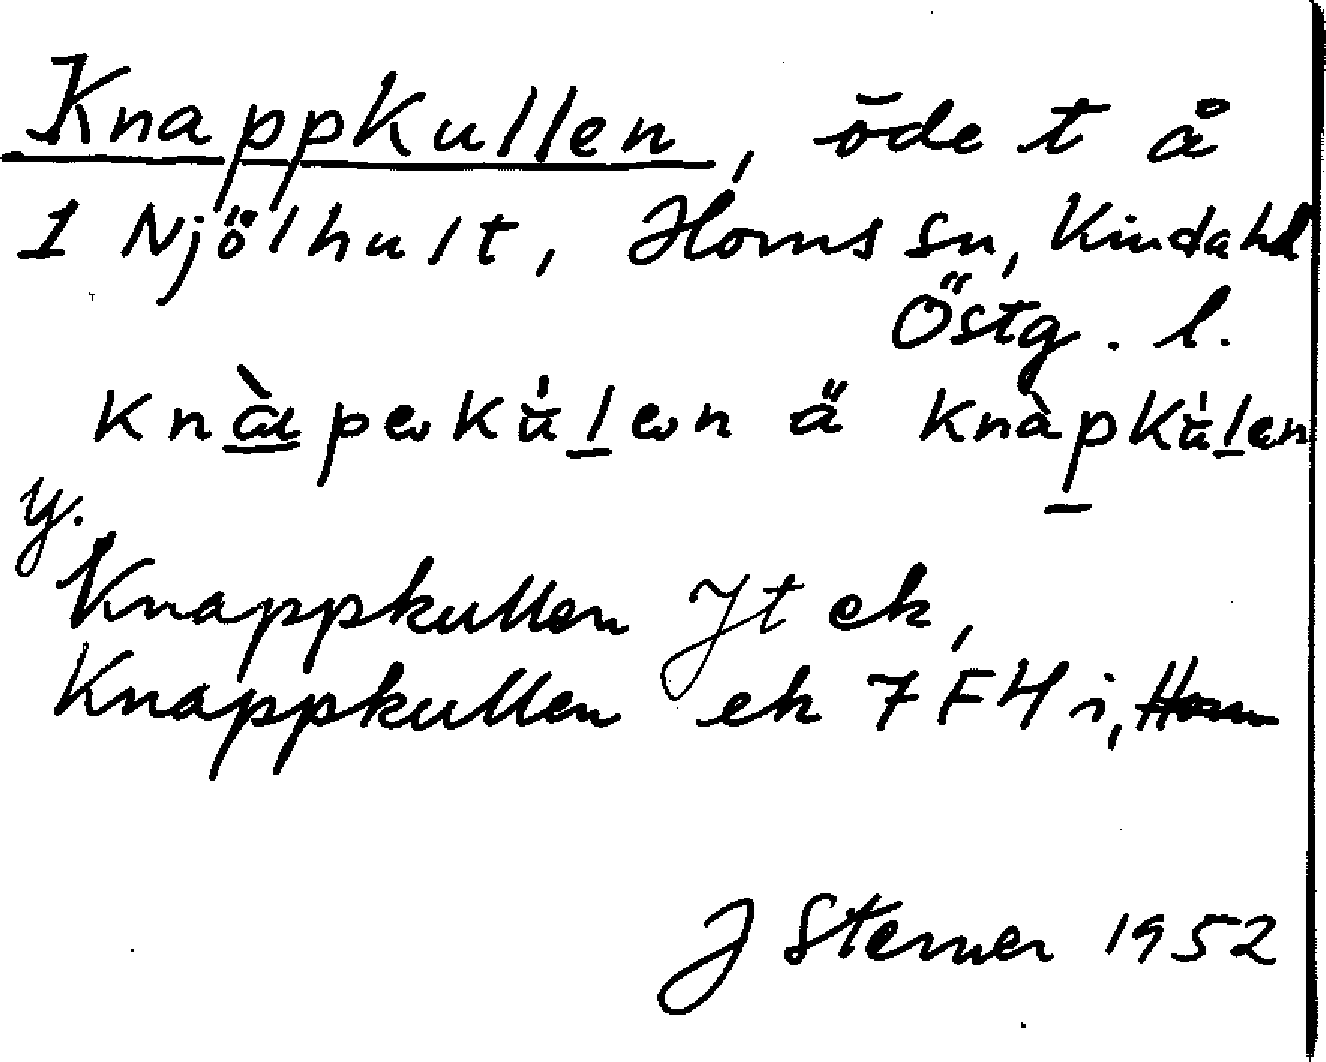 Knappkullen, öde t å
1 Njölhult, Horns sn, Kinda hd
Östg. l.
knàpekúlen ä knàpkúlen
y.
Knappkullen Jt ek,
Knappkullen ek 7 F4 i, Horn
J Sterner 1952